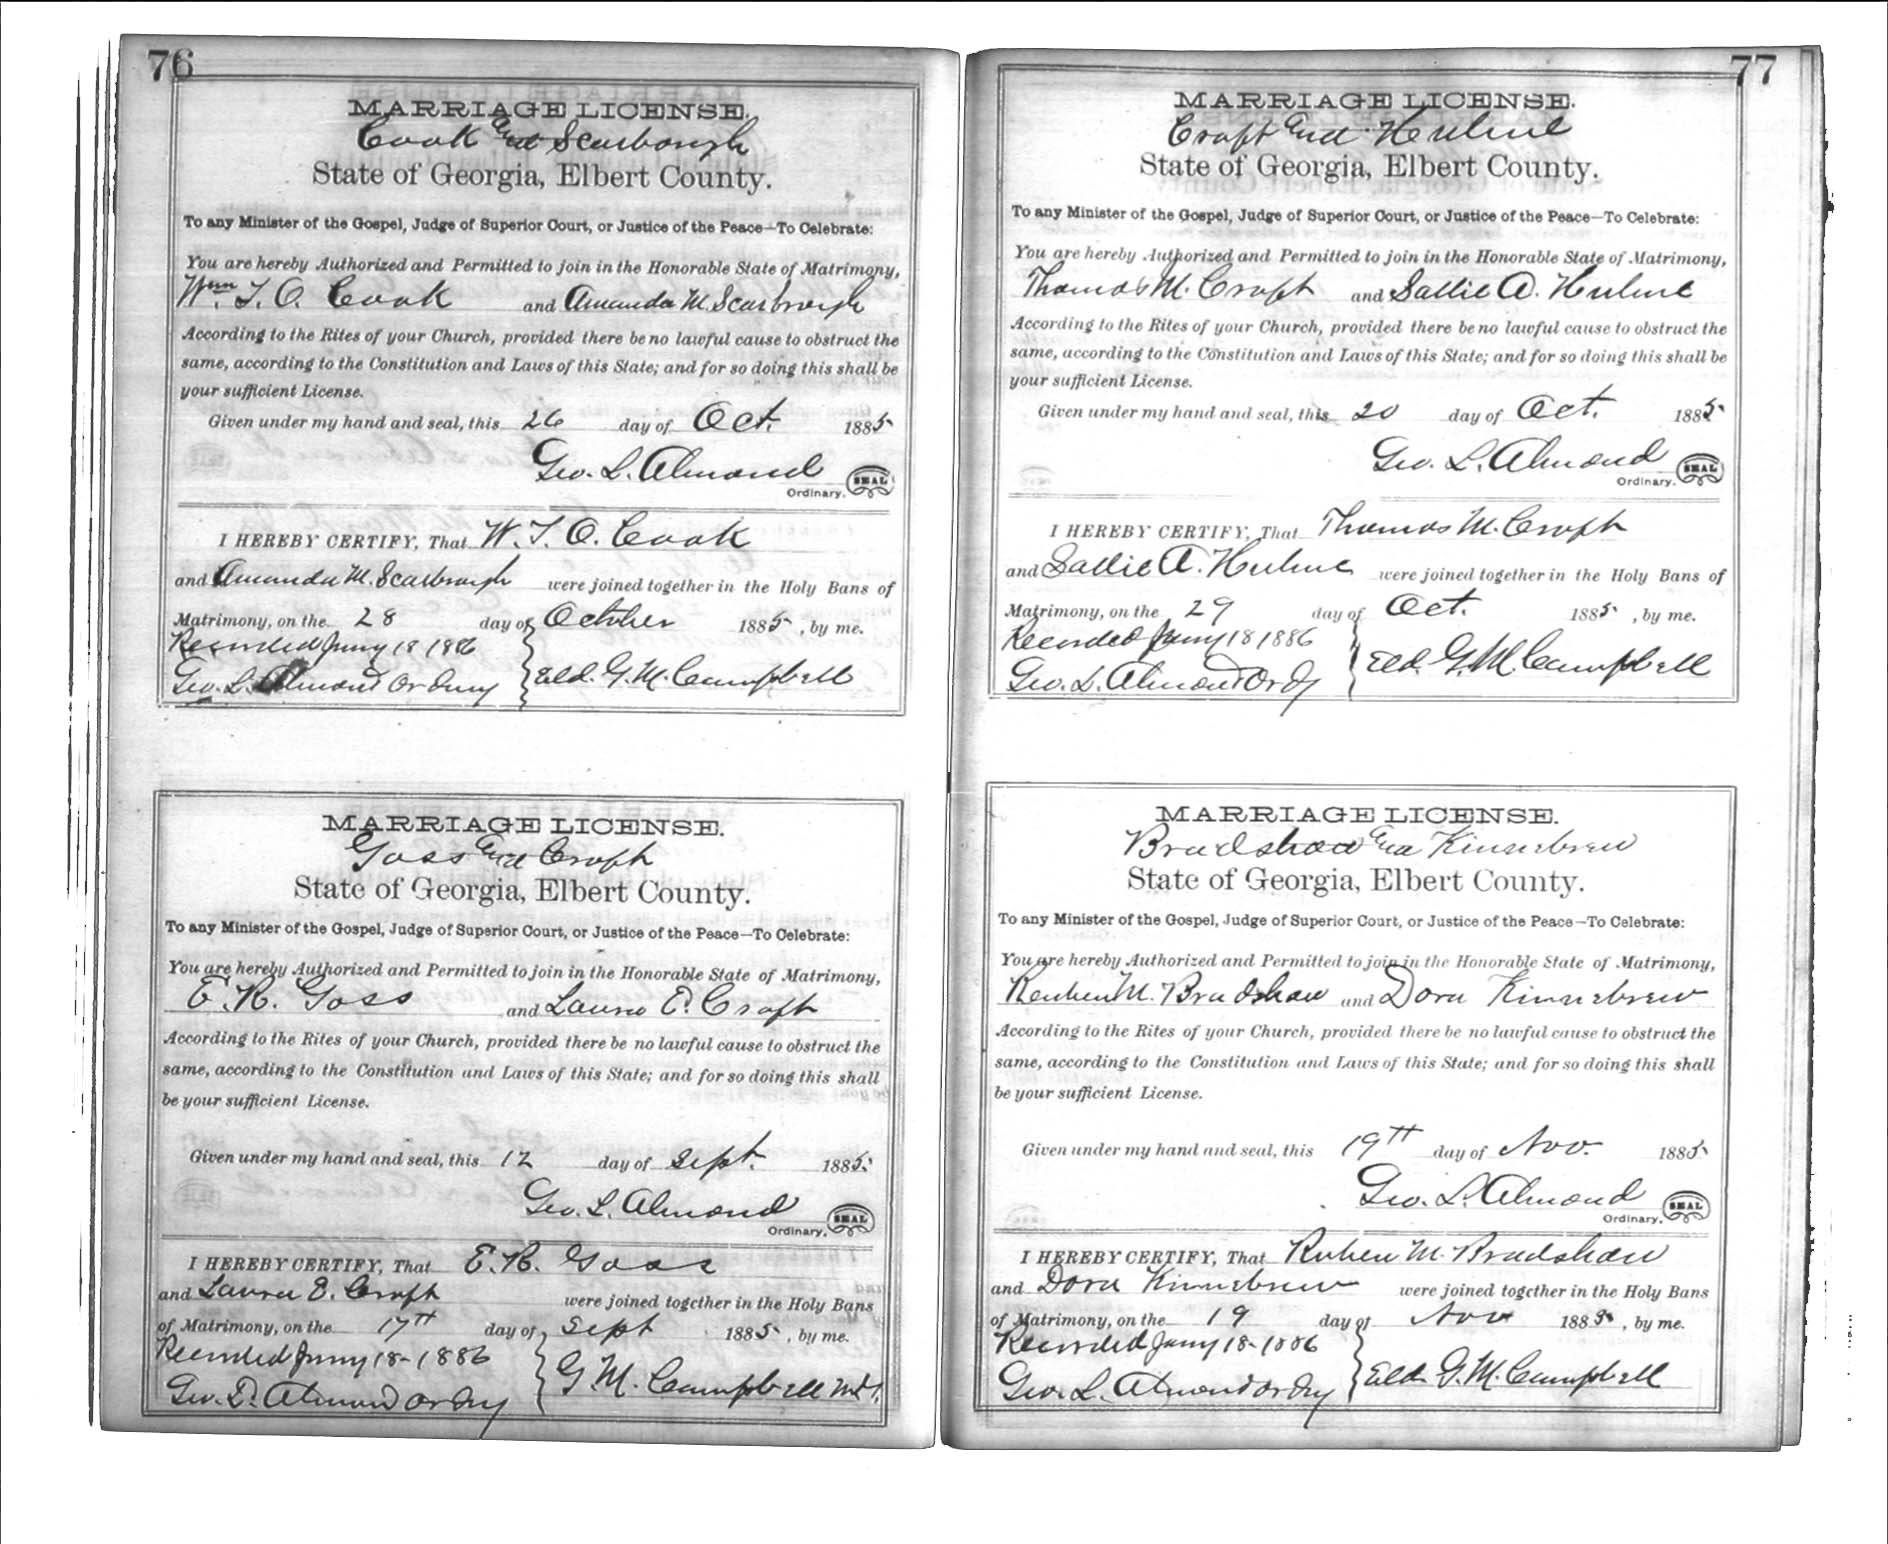 76
MARRIAGE LICENSE.
Cook and Scarbough
State of Georgia, Elbert County.
To any Minister of the Gospel, Judge of Superior Court, or Justice of the Peace—To Celebrate:
You are hereby Authorized and Permitted to join in the Honorable State of Matrimony,
Wm T. O. Cook and Amanda M. Scarbrough
According to the Rites of your Church, provided there be no lawful cause to obstruct the
same, according to the Constitution and Laws of this State; and for so doing this shall be
your sufficient License.
Given under my hand and seal, this 26 day of Oct. 1885
Geo. L. Almond SEAL
Ordinary.
I HEREBY CERTIFY, That W. T. O. Cook
and Amanda M. Scarbrough were joined together in the Holy Bans of
Matrimony, on the 28 day of October 1885, by me.
Recorded Jany 18 1886
Geo. L. Almond Ordny Eld. G. M. Campbell
MARRIAGE LICENSE.
Goss and Croft
State of Georgia, Elbert County.
To any Minister of the Gospel, Judge of Superior Court, or Justice of the Peace—To Celebrate:
You are hereby Authorized and Permitted to join in the Honorable State of Matrimony,
E. H. Goss and Laura E. Croft
According to the Rites of your Church, provided there be no lawful cause to obstruct the
same, according to the Constitution and Laws of this State; and for so doing this shall
be your sufficient License.
Given under my hand and seal, this 12 day of Sept. 1885.
Geo. L. Almond SEAL
Ordinary.
I HEREBY CERTIFY, That E. H. Goss
and Laura E. Croft were joined together in the Holy Bans
of Matrimony, on the 17th day of Sept 1885, by me.
Recorded Jany 18-1886
Geo. L. Almond Ordny G. M. Campbell
77
MARRIAGE LICENSE.
Croft and Hulme
State of Georgia, Elbert County.
To any Minister of the Gospel, Judge of Superior Court, or Justice of the Peace—To Celebrate:
You are hereby Authorized and Permitted to join in the Honorable State of Matrimony,
Thomas M. Croft and Sallie A. Hulme
According to the Rites of your Church, provided there be no lawful cause to obstruct the
same, according to the Constitution and Laws of this State; and for so doing this shall be
your sufficient License.
Given under my hand and seal, this 20 day of Oct. 1885
Geo. L. Almond SEAL
Ordinary.
I HEREBY CERTIFY, That Thomas M. Croft
and Sallie A. Hulme were joined together in the Holy Bans of
Matrimony, on the 29 day of Oct. 1885, by me.
Recorded Jany 18 1886
Geo. L. Almond Ordy Eld. G. M. Campbell
MARRIAGE LICENSE.
Bradshaw and Kinnebrew
State of Georgia, Elbert County.
To any Minister of the Gospel, Judge of Superior Court, or Justice of the Peace—To Celebrate:
You are hereby Authorized and Permitted to join in the Honorable State of Matrimony,
Reuben M. Bradshaw and Dora Kinnebrew
According to the Rites of your Church, provided there be no lawful cause to obstruct the
same, according to the Constitution and Laws of this State; and for so doing this shall
be your sufficient License.
Given under my hand and seal, this 19th day of Nov. 1885
Geo. L. Almond SEAL
Ordinary.
I HEREBY CERTIFY, That Ruben M. Bradshaw
and Dora Kinnebrew were joined together in the Holy Bans
of Matrimony, on the 19 day of Nov 1885, by me.
Recorded Jany 18-1886
Geo. L. Almond Ordny Eld. G. M. Campbell